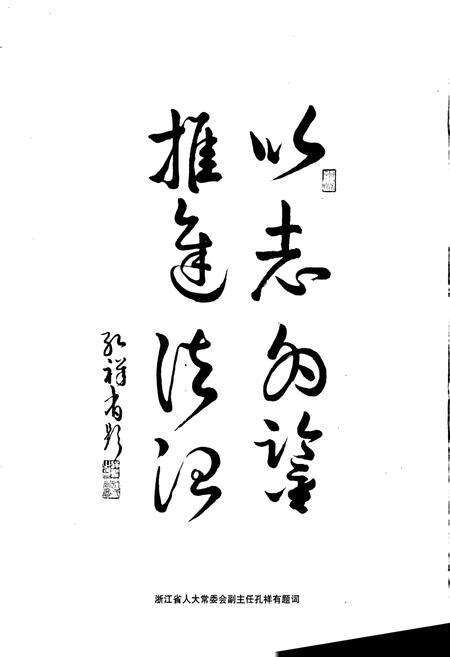 以志为鉴
推进法治
孔祥有题
浙江省人大常委会副主任孔祥有题词